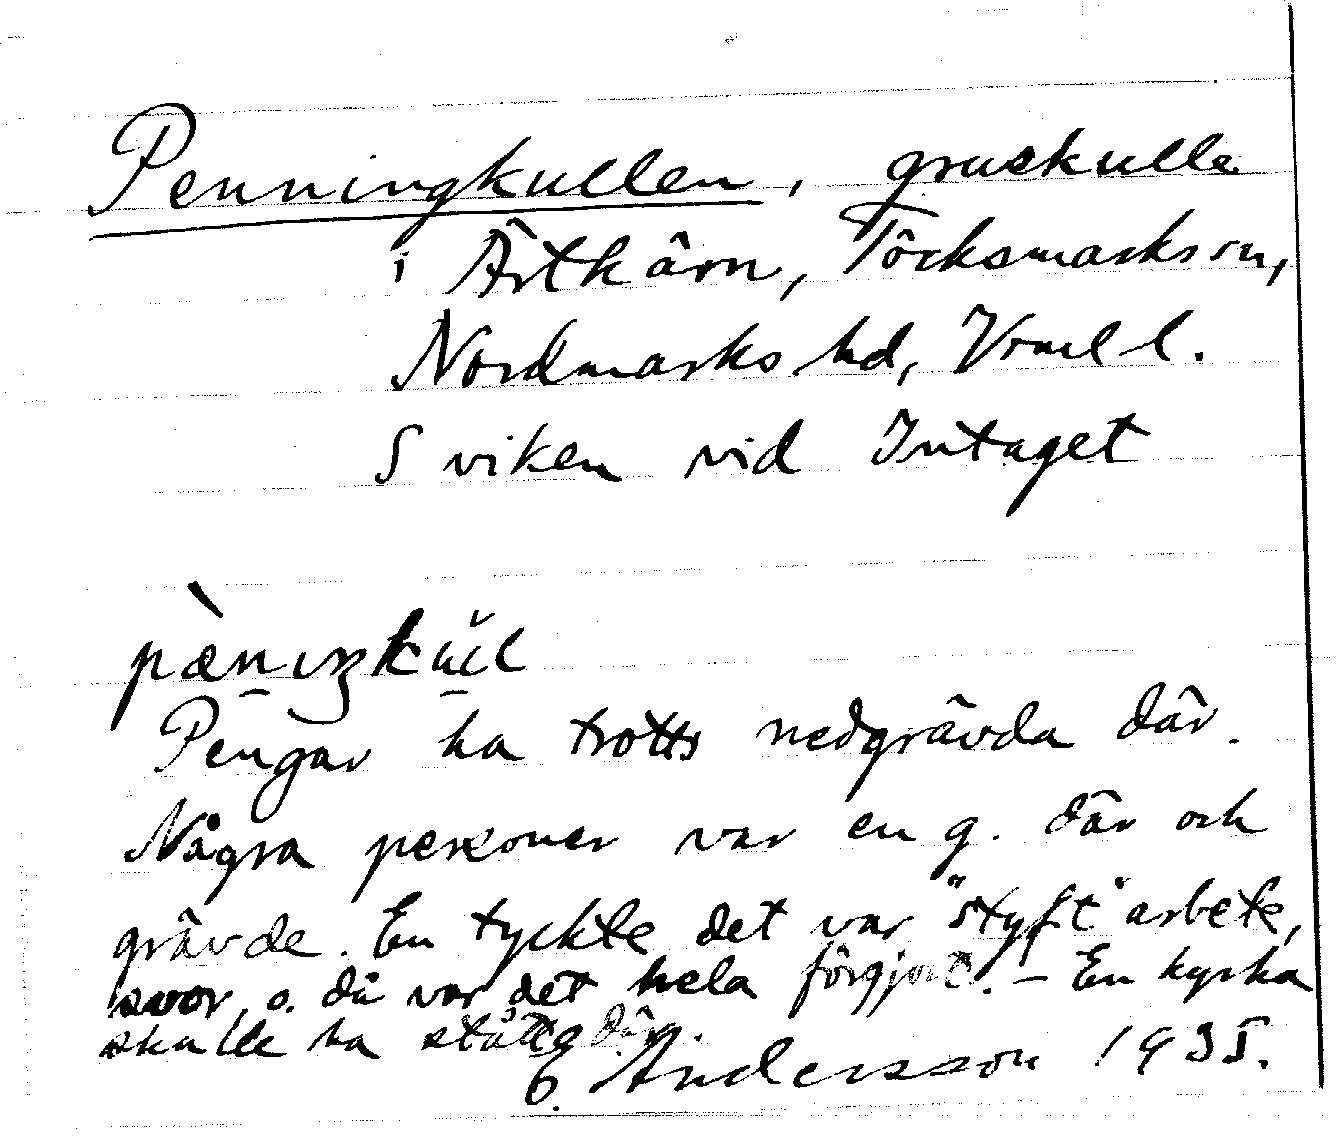 Penningkullen, gruskulle
i Ärtkärn, Töcksmarks sn,
Nordmarks hd, Vrml l.
S viken vid Intaget
Pengar ha trotts nedgrävda där.
Några personer var en g. där och
grävde. En tyckte det var "styft" arbete,
svor, o. då var det hela förgjort. – En kyrka
skulle ha stått där.
E. Andersson 1935.